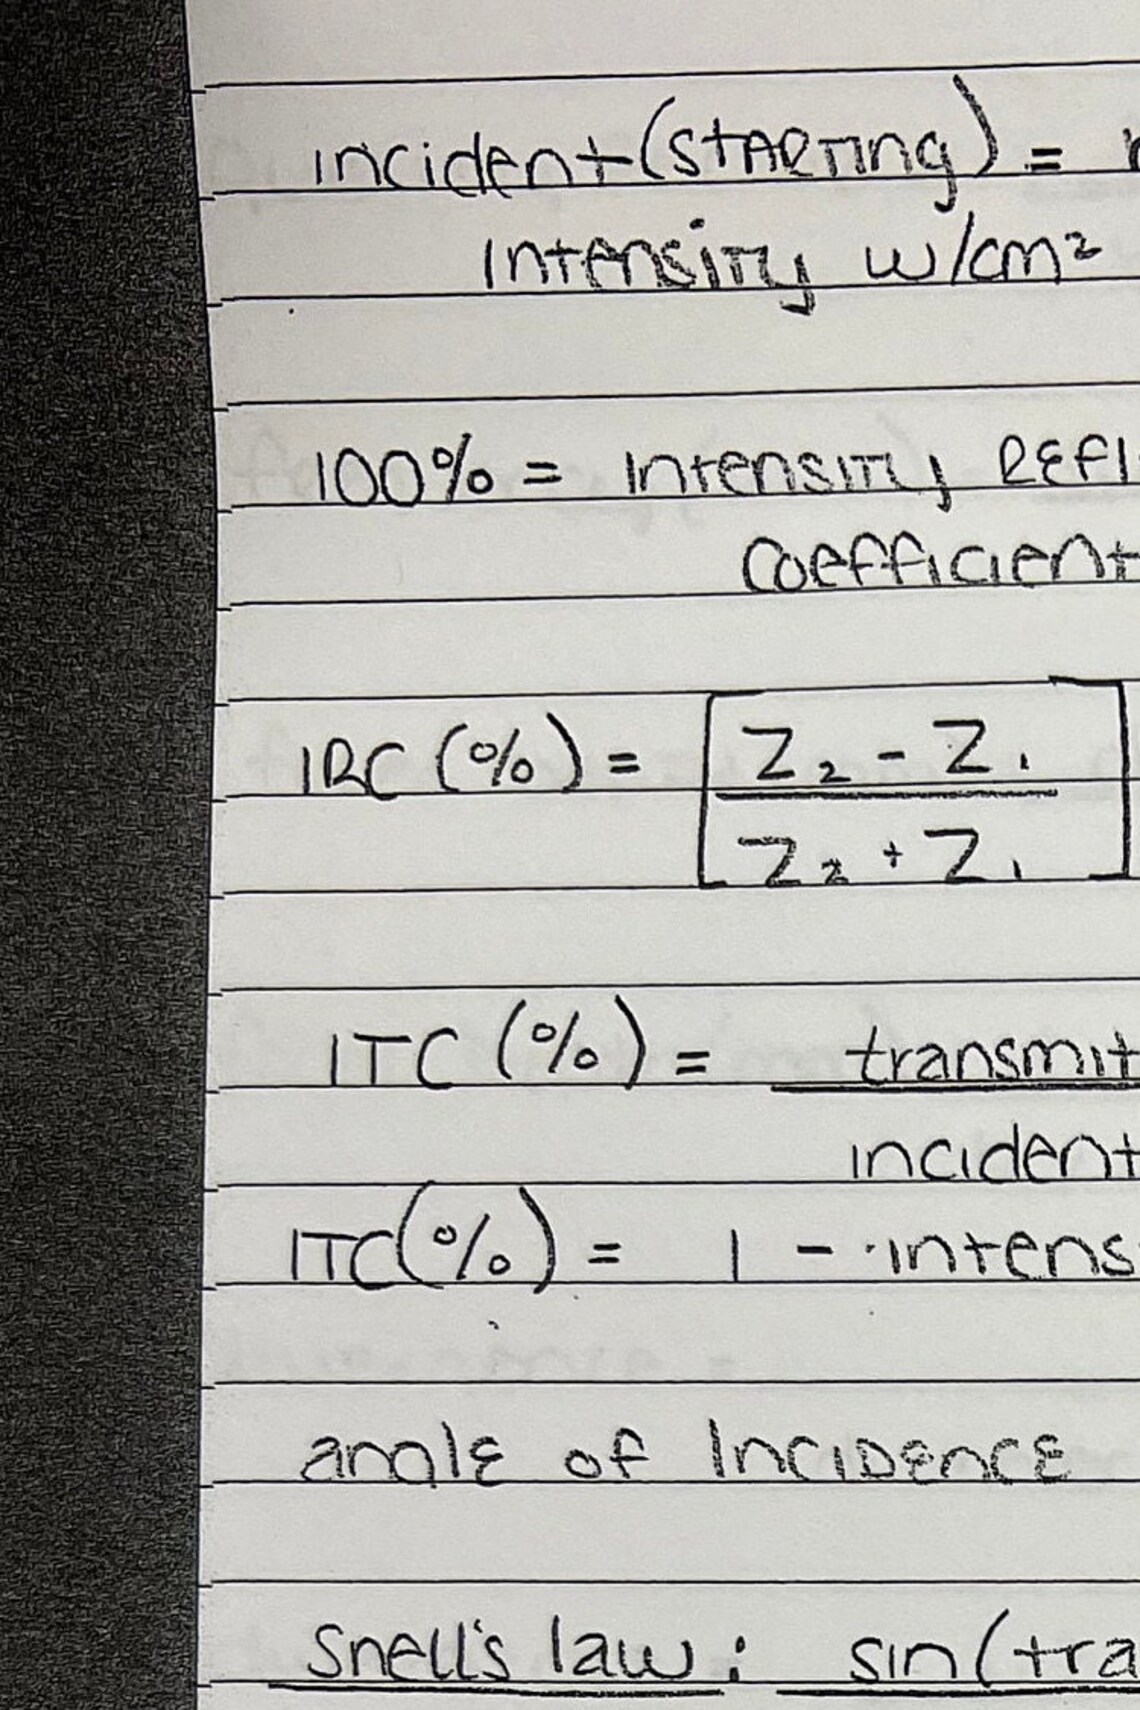 incident (starting) =
Intensity w/cm²
100% = Intensity Refl
Coefficient
IRC (%) = [Z₂ - Z₁
Z₂ + Z₁]
ITC (%) = transmit
incident
ITC (%) = 1 - intens
angle of Incidence
Snell's law: sin(tra